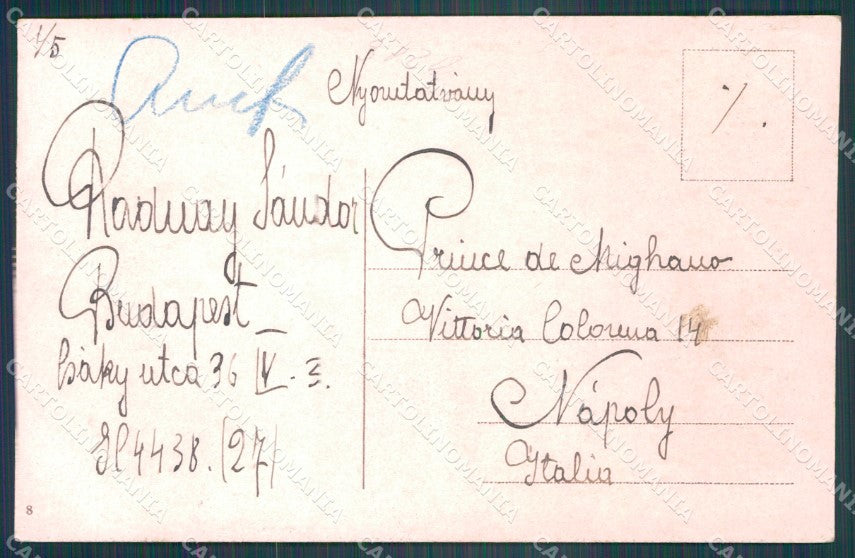 1/5
Nyomtatvány
%.
Radnay Sándor
Budapest
Csáky utca 36 IV. 3.
4438. (27)
Prince de Mighano
Vittoria Colonna 14
Nápoly
Italia
8
CARTOLINOMANIA